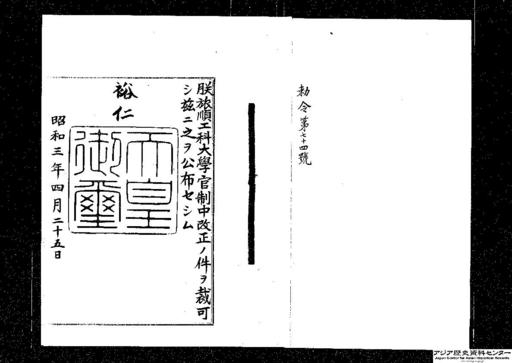 勅令第七十四號
朕旅順工科大學官制中改正ノ件ヲ裁可
シ茲ニ之ヲ公布セシム
裕仁
天皇御璽
昭和三年四月二十五日
アジア歴史資料センター
Japan Center for Asian Historical Records